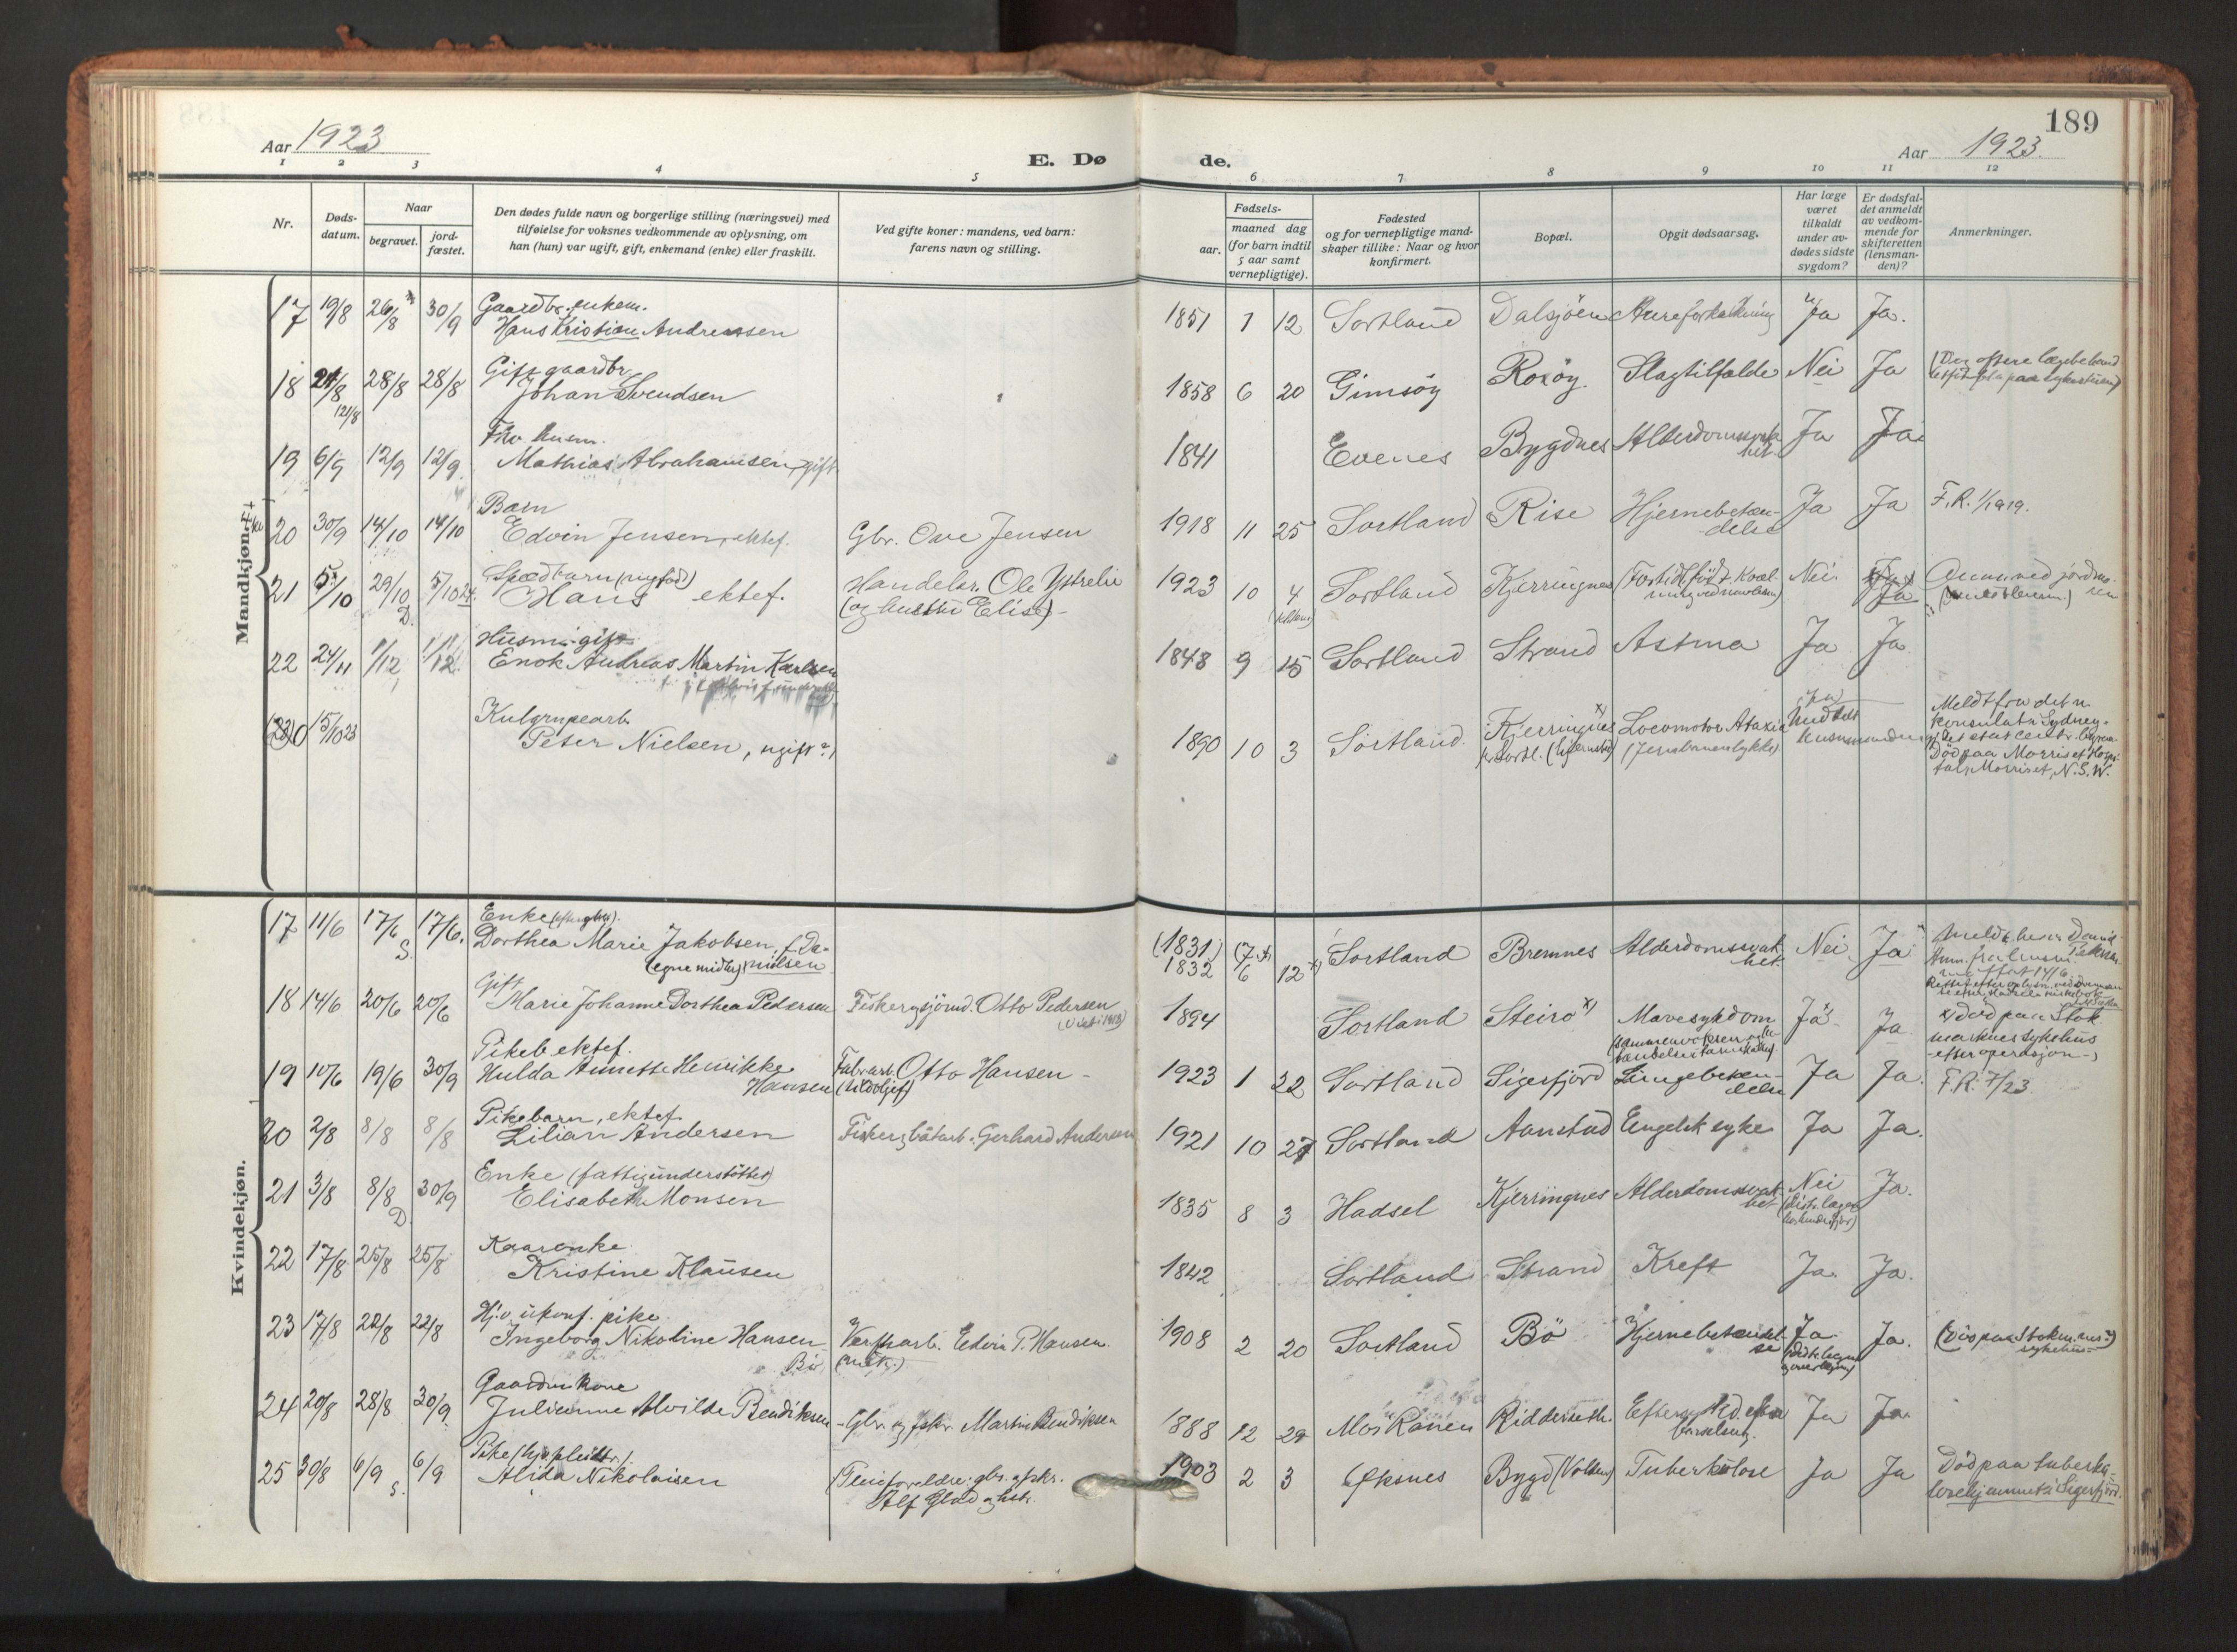 189
Aar 1923
E. Dø
de.
Aar 1923.
1 2 3 4 5
6 7 8 9 10 11 12
Nr.
Døds-
datum.
Naar
begravet.
jord-
fæstet.
Den dødes fulde navn og borgerlige stilling (næringsvei) med
tilføielse for voksnes vedkommende av oplysning, om
han (hun) var ugift, gift, enkemand (enke) eller fraskilt.
Ved gifte koner: mandens, ved barn:
farens navn og stilling.
Fødsels-
aar.
maaned dag
(for barn indtil
5 aar samt
vernepligtige).
Fødested
og for vernepligtige mand-
skaper tillike: Naar og hvor
konfirmert.
Bopæl.
Opgit dødsaarsag.
Har læge
været
tilkaldt
under av-
dødes sidste
sygdom?
Er dødsfal-
det anmeldt
av vedkom-
mende for
skifteretten
(lensman-
den)?
Anmerkninger.
Mandkjøn.
17 19/8 26/8 30/9 Gaardbr. enkem.
Hans Kristian Andreassen
1851 7 12 Sortland Dalsjöen Aareforkalkning Ja Ja.
18 21/8 28/8 28/8 Gift gaardbr.
Johan Svendsen
1858 6 20 Gimsöy Roköy Slagtilfælde Nei Ja
19 6/9 12/9 12/9 Fhv. husm.
Mathias Abrahamsen, gift
1841 Evenes Bygdnes Alderdomssvak-
het Ja Ja
20 30/9 14/10 14/10 Barn
Edvin Jensen, ektef. Gbr. Ove Jensen
1918 11 25 Sortland Rise Hjernebetæn-
delse Ja Ja F.R. 1/1919.
21 5/10 29/10 D. 5/10 24. Spædbarn (nyfød)
Hans ektef. Handelsr. Ole Ytrelie
(og hustru Elise)
1923 10 4 Sortland Kjerringnes Nei Ja
22 24/11 1/12 1/12 Husm. gift
Enok Andreas Martin Karlsen
1848 9 15 Sortland Strand Astma Ja Ja
(23) 0 15/10 23 Kulgrupearb.
Peter Nielsen, ugift?
1890 10 3 Sortland. Kjerringnes
(hjemsted) Locomotor Ataxia
Meldt fra det n.
konsulat i Sydney
Död paa Morriset Hospi-
tal, Morriset, N.S.W.
Kvindekjøn.
17 11/6 17/6 S. 17/6. Enke
Dorthea Marie Jakobsen, f. Da-
(egne midler) nielsen
(1831) 1832 (7) 6 12 Sortland Bremnes Alderdomssvak-
het Nei Ja
18 14/6 20/6 20/6 Gift
Marie Johanne Dorthea Pedersen Fisker gsjömd. Otto Pedersen
1894 Sortland Steiro Mavesykdom Ja Ja
död paa Stok-
marknes sykehus
efter operasjon
19 10/6 19/6 30/9 Pikeb. ektef.
Hulda Annette Henrikke
Hansen Fabr.arb. Otto Hansen
(sildoljef)
1923 1 22 Sortland Sigerfjord Lungebetæn-
delse Ja Ja. F.R. 7/23.
20 2/8 8/8 8/8 Pikebarn, ektef.
Lilian Andersen Fisker g båtarb. Gerhard Andersen
1921 10 27 Sortland Aanstad Engelsk syke Ja Ja.
21 3/8 8/8 D 30/9 Enke (fattigunderstöttet)
Elisabeth Monsen
1835 8 3 Hadsel Kjerringnes Alderdomssvak-
het Nei Ja.
22 17/8 25/8 25/8 Kaarenke
Kristine Klausen
1842 Sortland Strand Kreft Ja. Ja.
23 17/8 22/8 22/8 Hj.v. ukonf. pike
Ingeborg Nikoline Hansen
Bö Verftsarb. Edvin P. Hansen
1908 2 20 Sortland Bö Hjernebetændel-
se Ja Ja.
sykehus
24 20/8 28/8 30/9 Gaardm.kone
Julianne Alvilde Bendiksen Gbr. og fskr. Martin Bendiksen
1888 12 29 Ridderseth. Ja Ja.
25 30/8 6/9 S. 6/9 Pike
Alida Nikolaisen (Pleieforældre: gbr. g fskr.
Alf Glad g hstr.
1903 2 3 Öksnes Bygd Tuberkulose Ja Ja Död paa tuberku-
losehjemmet i Sigerfjord.